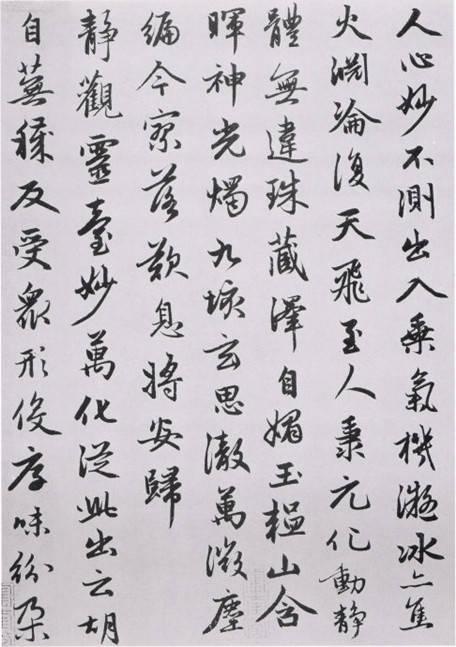 人心妙不測出入乘氣機凝冰亦焦
火淵淪復天飛至人秉元化動静
體無違珠藏澤自媚玉韞山含
暉神光燭九垓玄思徹萬微塵
編今寥落歎息將安歸
静觀靈臺妙萬化從此出云胡
自蕪穢反受衆形役厚味紛朶